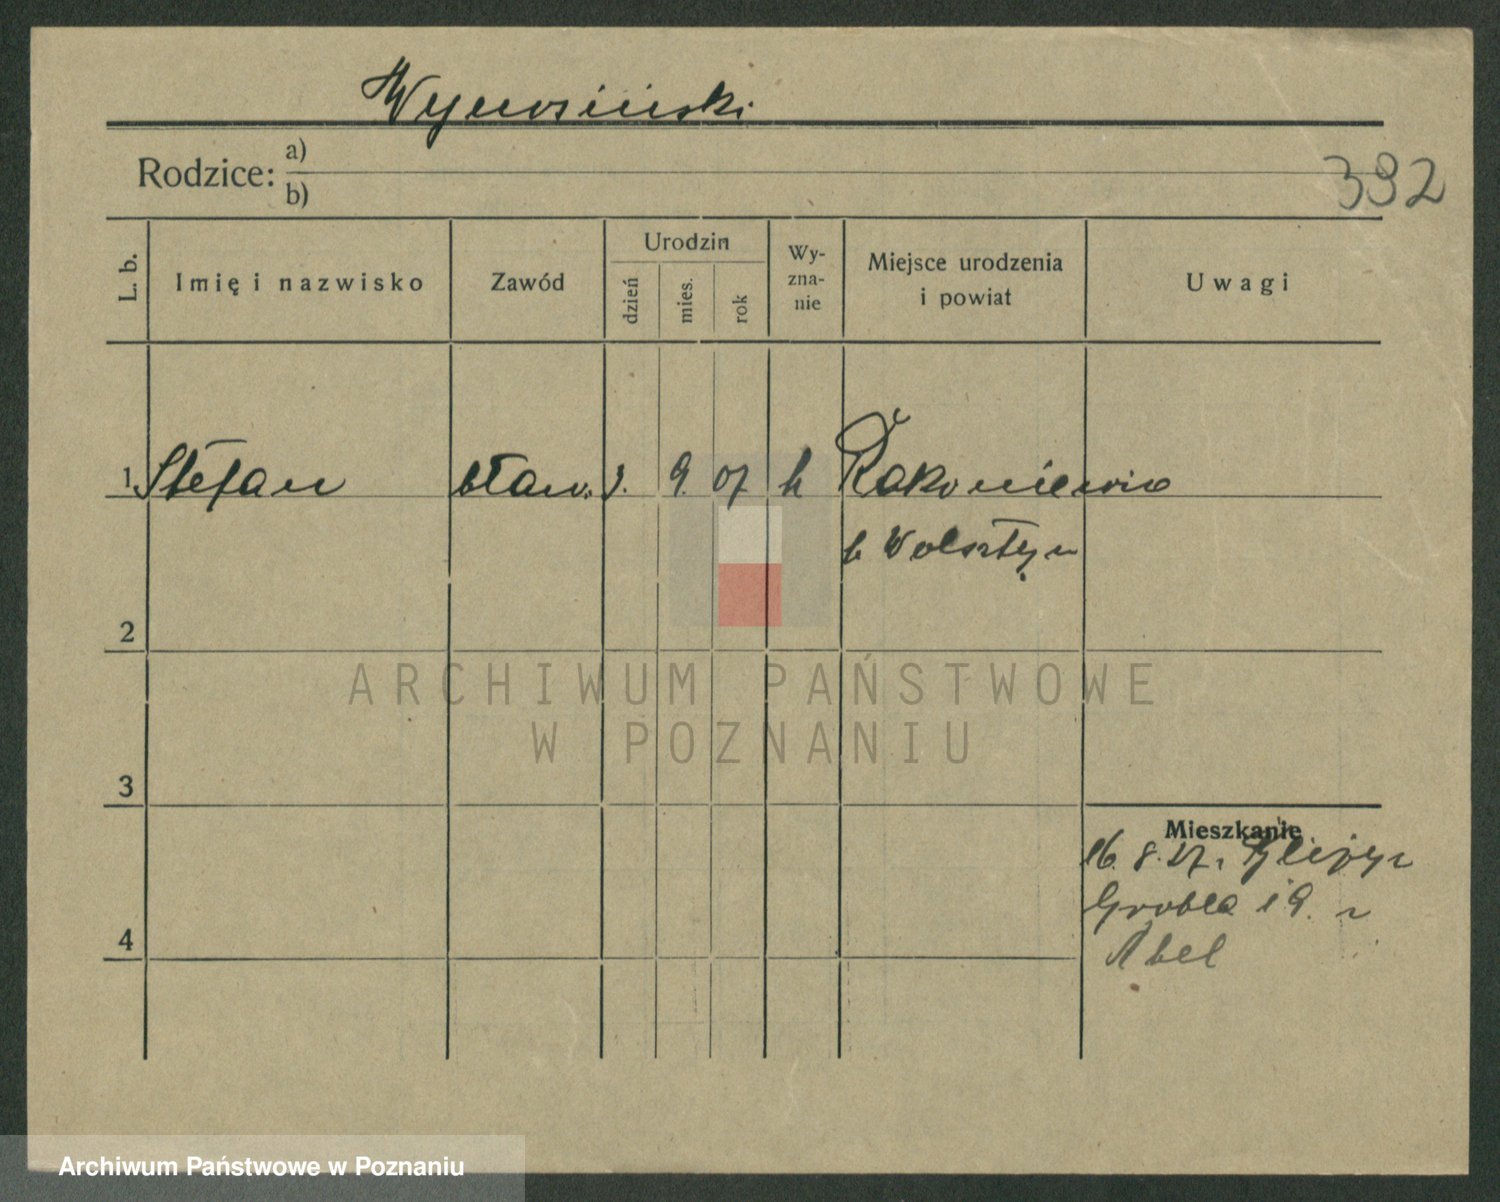 Wynosiński
Rodzice: a)
b)
392
L. b.
Imię i nazwisko
Zawód
Urodzin
dzień
mies.
rok
Wy-
zna-
nie
Miejsce urodzenia
i powiat
Uwagi
1 Stefan bław. 3. 9. 07 k Rakoniewice
k Wolsztyn
2
ARCHIWUM PAŃSTWOWE
W POZNANIU
3
Mieszkanie
16. 8. 27.
4
Grobla 19.
Abel
Archiwum Państwowe w Poznaniu